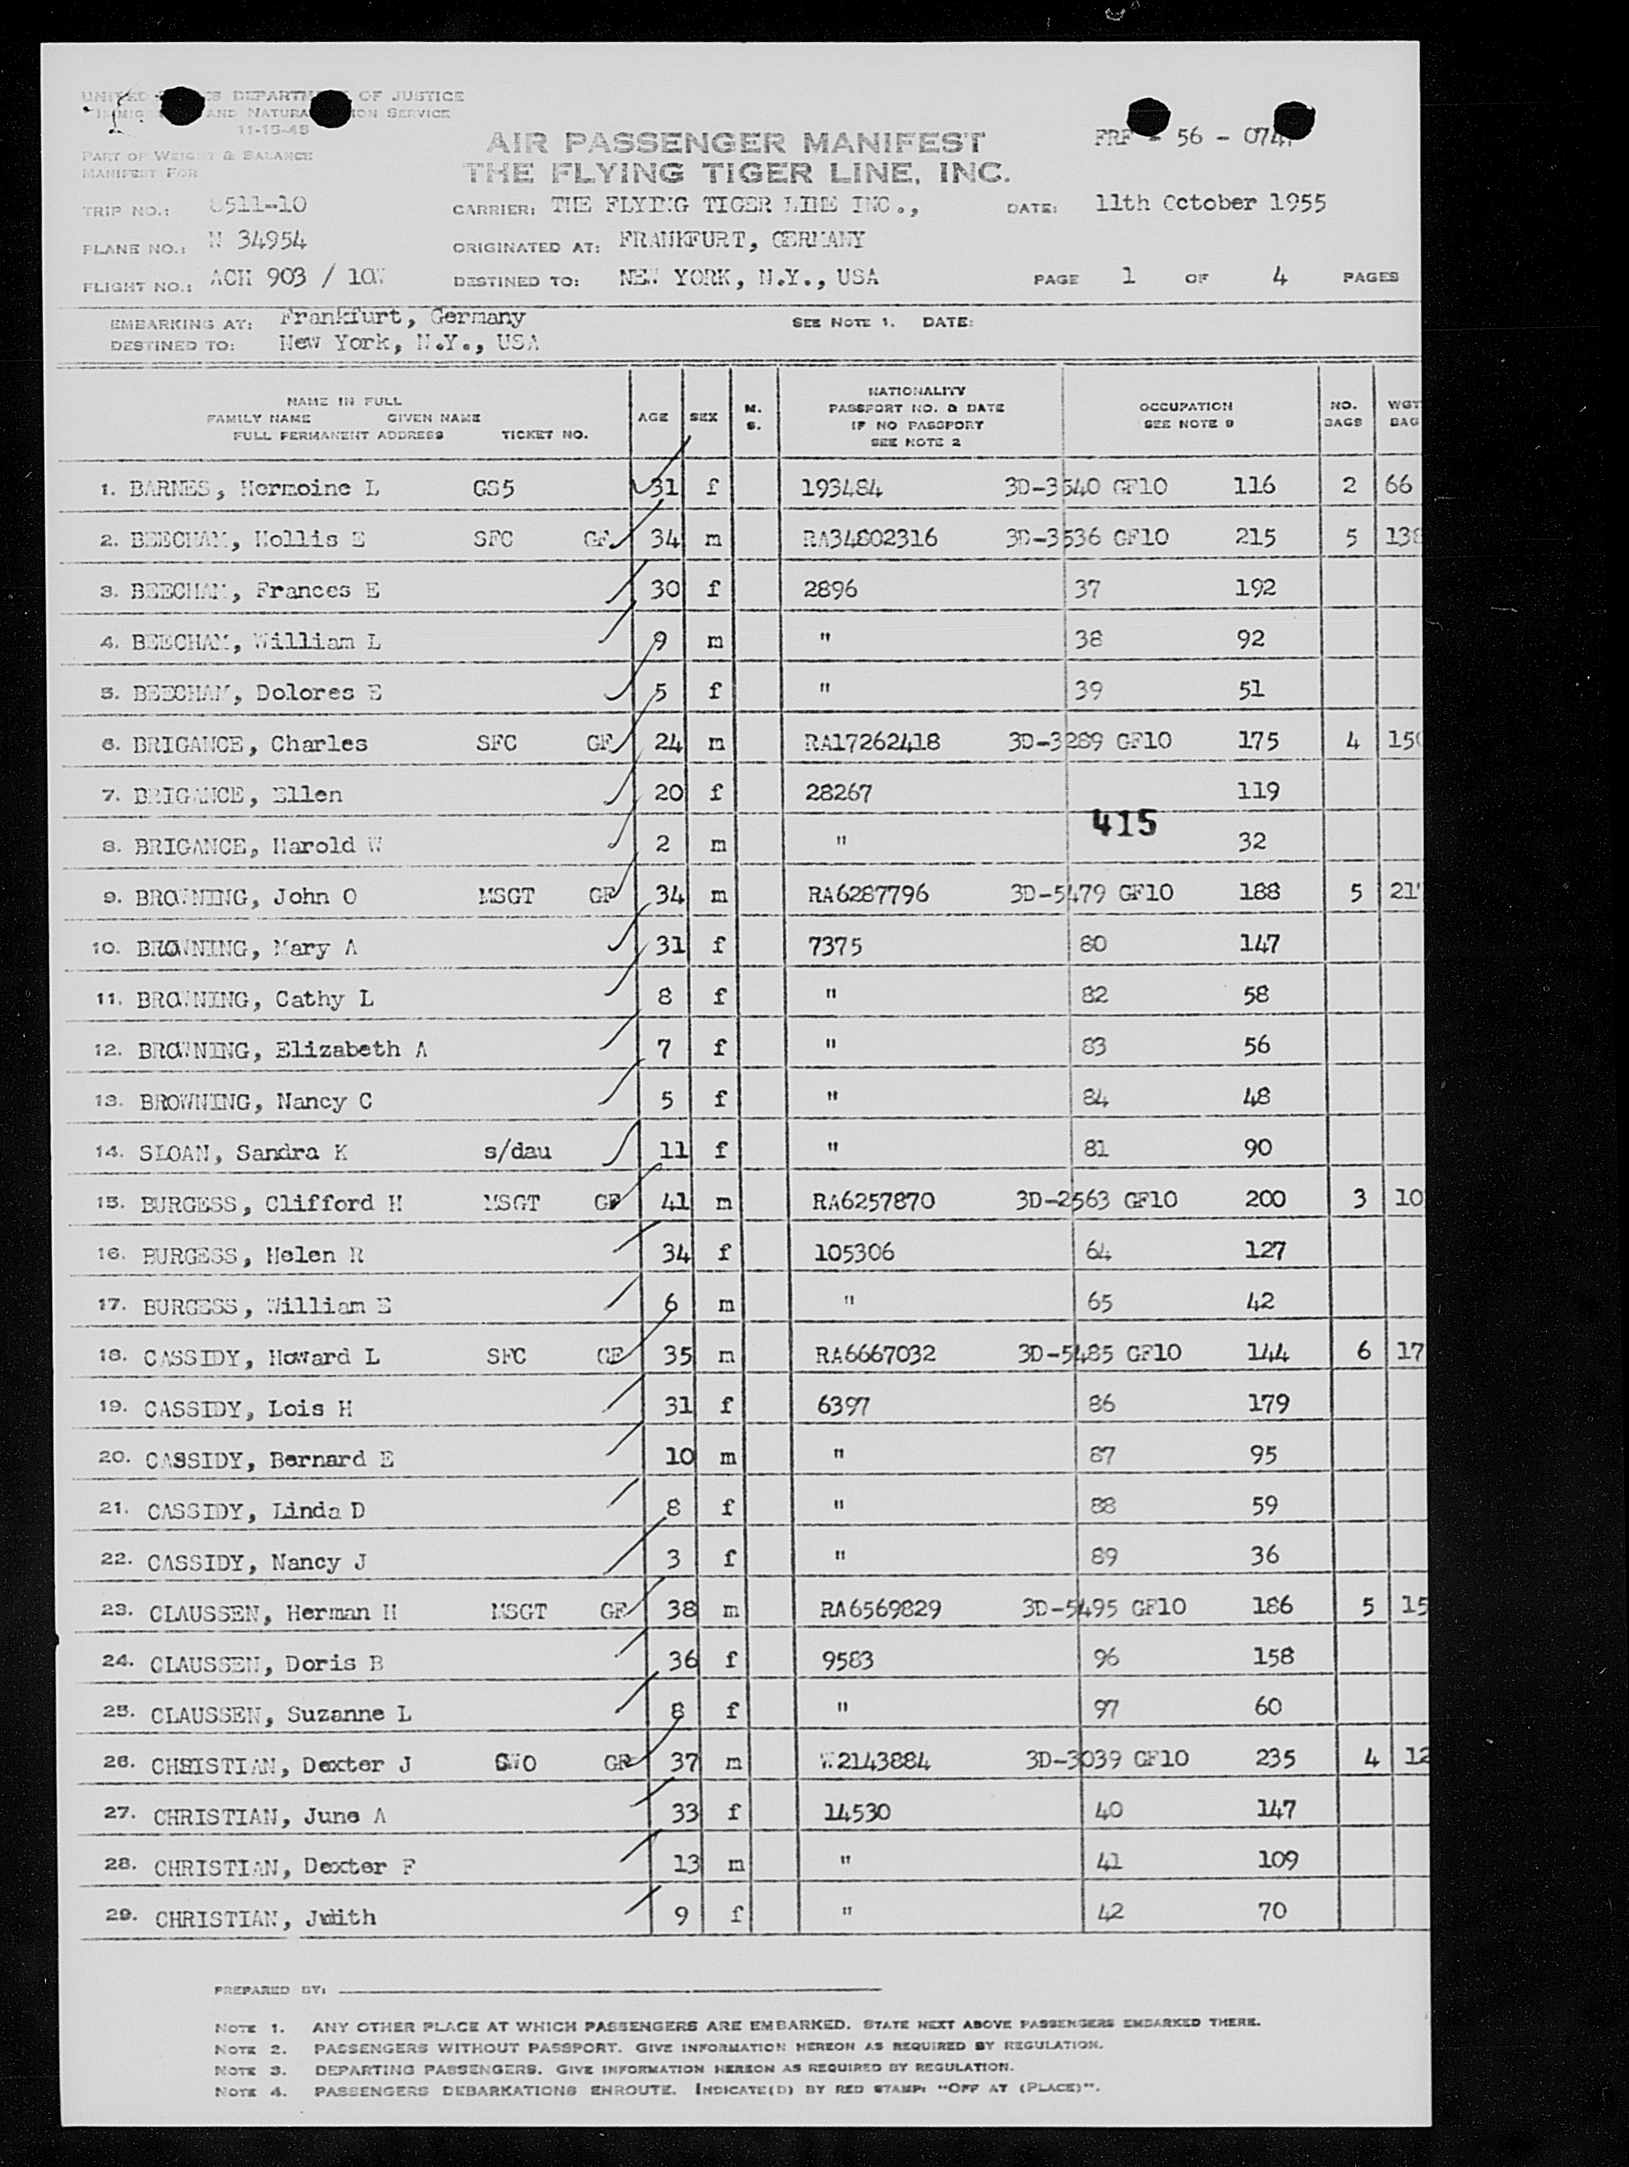 UNITED DEPARTM OF JUSTICE
IMMIG AND NATURA ION SERVICE
11-15-48
PART OF WEIGHT & BALANCE
MANIFEST FOR
AIR PASSENGER MANIFEST
THE FLYING TIGER LINE, INC.
FRF - 56 - 074
TRIP NO.: 8511-10 CARRIER: THE FLYING TIGER LINE INC., DATE: 11th October 1955
PLANE NO.: N 34954 ORIGINATED AT: FRANKFURT, GERMANY
FLIGHT NO.: ACH 903 / 10W DESTINED TO: NEW YORK, N.Y., USA PAGE 1 OF 4 PAGES
EMBARKING AT: Frankfurt, Germany SEE NOTE 1. DATE:
DESTINED TO: New York, N.Y., USA
NAME IN FULL
FAMILY NAME GIVEN NAME
FULL PERMANENT ADDRESS TICKET NO. AGE SEX M. S. NATIONALITY PASSPORT NO. & DATE IF NO PASSPORT SEE NOTE 2 OCCUPATION SEE NOTE 9 NO. BAGS WGT BAG
1. BARNES, Hermoine L GS5 31 f 193484 3D-3540 GF10 116 2 66
2. BEECHAM, Hollis E SFC GF 34 m RA34802316 3D-3536 GF10 215 5 138
3. BEECHAM, Frances E 30 f 2896 37 192
4. BEECHAM, William L 9 m " 38 92
5. BEECHAM, Dolores E 5 f " 39 51
6. BRIGANCE, Charles SFC GF 24 m RA17262418 3D-3289 GF10 175 4 150
7. BRIGANCE, Ellen 20 f 28267 119
415
8. BRIGANCE, Harold W 2 m " 32
9. BROWNING, John O MSGT GF 34 m RA6287796 3D-5479 GF10 188 5 21
10. BROWNING, Mary A 31 f 7375 80 147
11. BROWNING, Cathy L 8 f " 82 58
12. BROWNING, Elizabeth A 7 f " 83 56
13. BROWNING, Nancy C 5 f " 84 48
14. SLOAN, Sandra K s/dau 11 f " 81 90
15. BURGESS, Clifford H MSGT GF 41 m RA6257870 3D-2563 GF10 200 3 10
16. BURGESS, Helen R 34 f 105306 64 127
17. BURGESS, William E 6 m " 65 42
18. CASSIDY, Howard L SFC GF 35 m RA6667032 3D-5485 GF10 144 6 17
19. CASSIDY, Lois H 31 f 6397 86 179
20. CASSIDY, Bernard E 10 m " 87 95
21. CASSIDY, Linda D 8 f " 88 59
22. CASSIDY, Nancy J 3 f " 89 36
23. CLAUSSEN, Herman H MSGT GF 38 m RA6569829 3D-5495 GF10 186 5 15
24. CLAUSSEN, Doris B 36 f 9583 96 158
25. CLAUSSEN, Suzanne L 8 f " 97 60
26. CHRISTIAN, Dexter J CWO GR 37 m W2143884 3D-3039 GF10 235 4 12
27. CHRISTIAN, June A 33 f 14530 40 147
28. CHRISTIAN, Dexter F 13 m " 41 109
29. CHRISTIAN, Judith 9 f " 42 70
PREPARED BY:
NOTE 1. ANY OTHER PLACE AT WHICH PASSENGERS ARE EMBARKED. STATE NEXT ABOVE PASSENGERS EMBARKED THERE.
NOTE 2. PASSENGERS WITHOUT PASSPORT. GIVE INFORMATION HEREON AS REQUIRED BY REGULATION.
NOTE 3. DEPARTING PASSENGERS. GIVE INFORMATION HEREON AS REQUIRED BY REGULATION.
NOTE 4. PASSENGERS DEBARKATIONS ENROUTE. INDICATE(D) BY RED STAMP: "OFF AT (PLACE)".